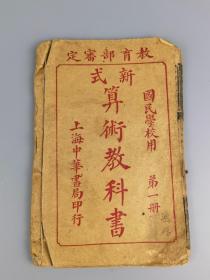 教育部審定
國民學校用
第一冊
新式
算術教科書
上海中華書局印行